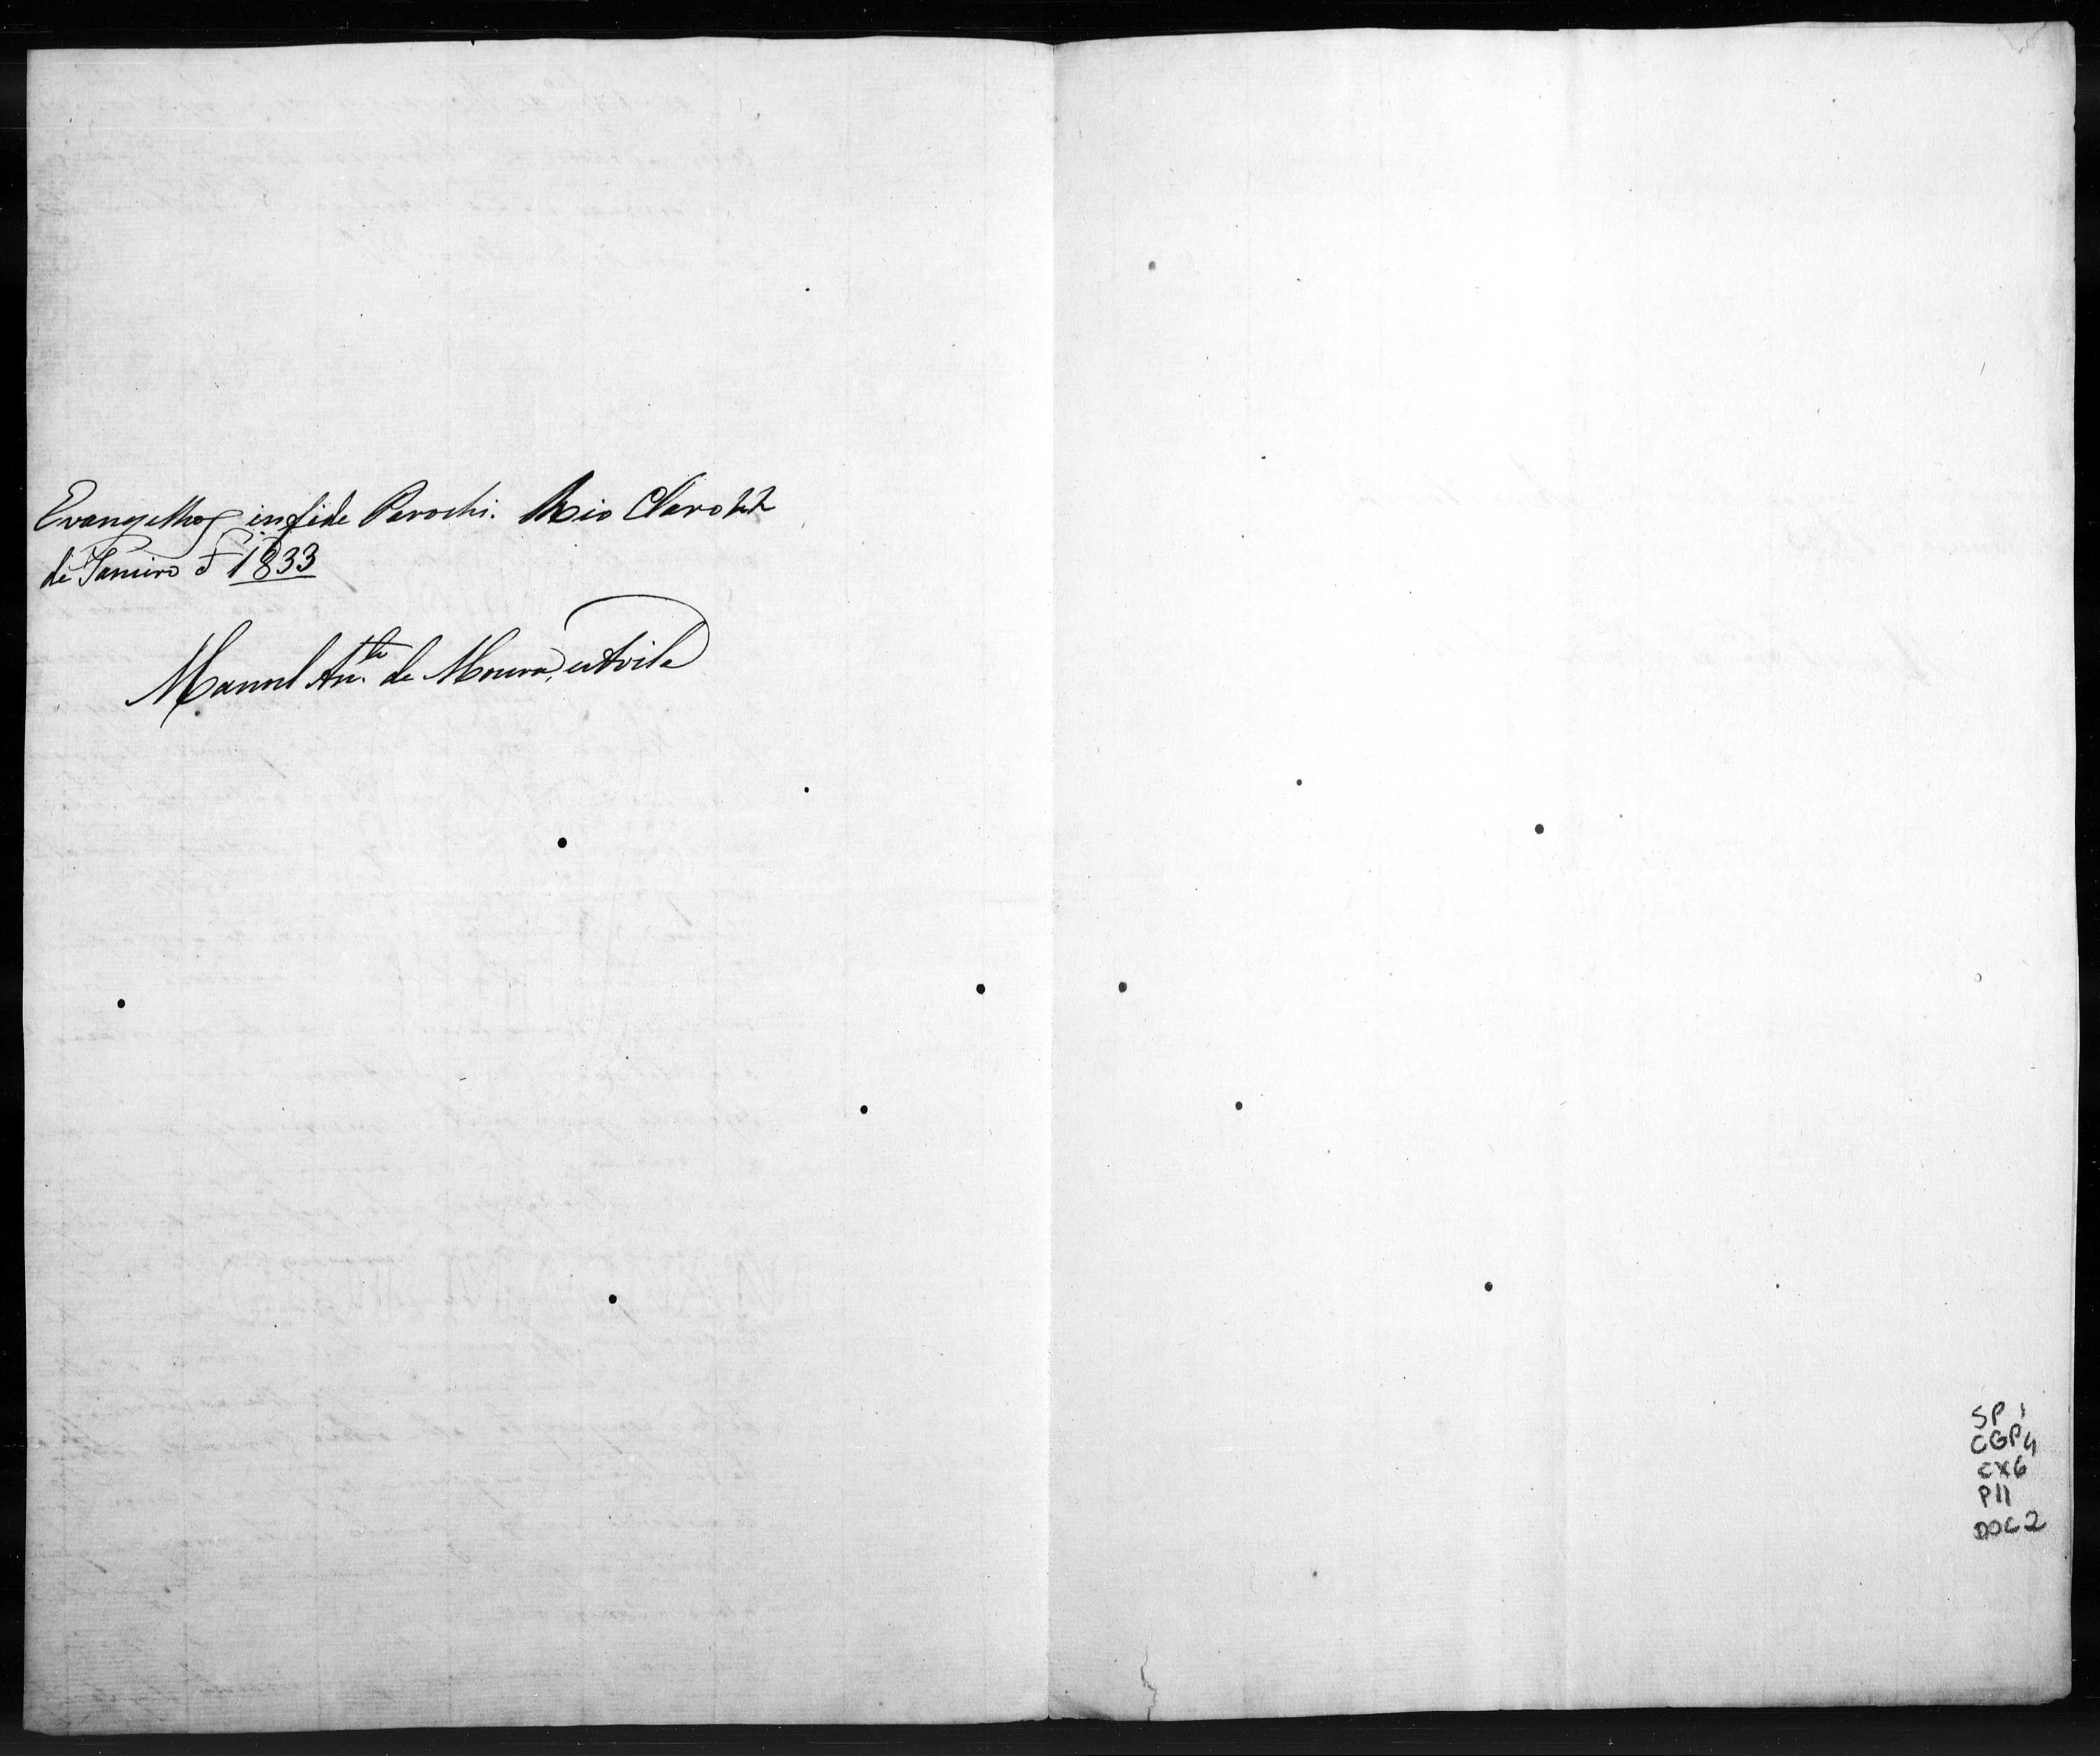 Evangelhos in fide Parochi. Rio Claro 22
de Janeiro d 1833
Manoel An.to de Moura, e Avila
SP 1
CGP4
CX6
P11
DOC 2